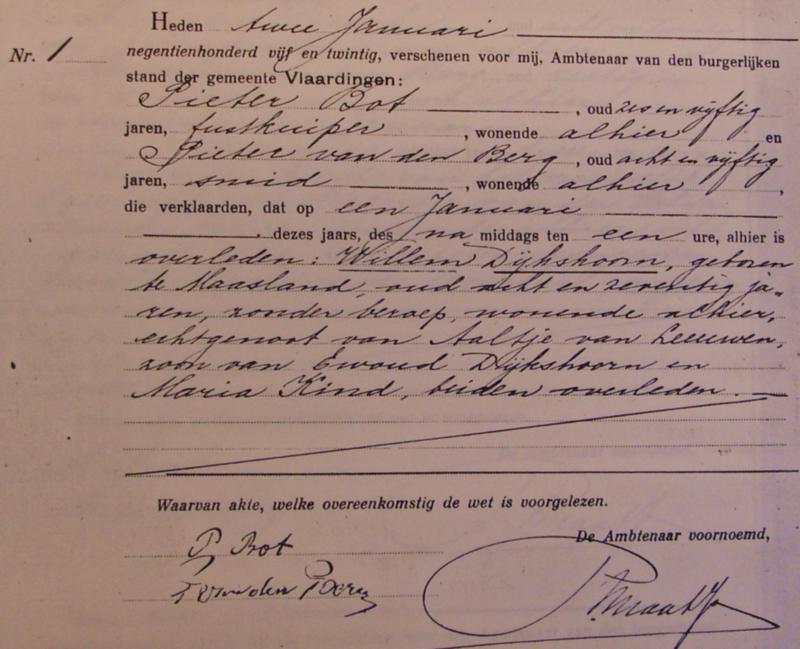 Heden twee Januari
Nr. 1
negentienhonderd vijf en twintig, verschenen voor mij, Ambtenaar van den burgerlijken
stand der gemeente Vlaardingen:
Pieter Bot, oud zes en vijftig
jaren, fustkuiper, wonende alhier en
Pieter van den Berg, oud acht en vijftig
jaren, smid, wonende alhier,
die verklaarden, dat op een Januari
dezes jaars, des na middags ten een ure, alhier is
overleden: Willem Dijkshoorn, geboren
te Maasland, oud acht en zeventig ja-
ren, zonder beroep, wonende alhier,
echtgenoot van Aaltje van Leeuwen,
zoon van Ewoud Dijkshoorn en
Maria Kind, beiden overleden.
Waarvan akte, welke overeenkomstig de wet is voorgelezen.
De Ambtenaar voornoemd,
P. Bot
P van den Berg